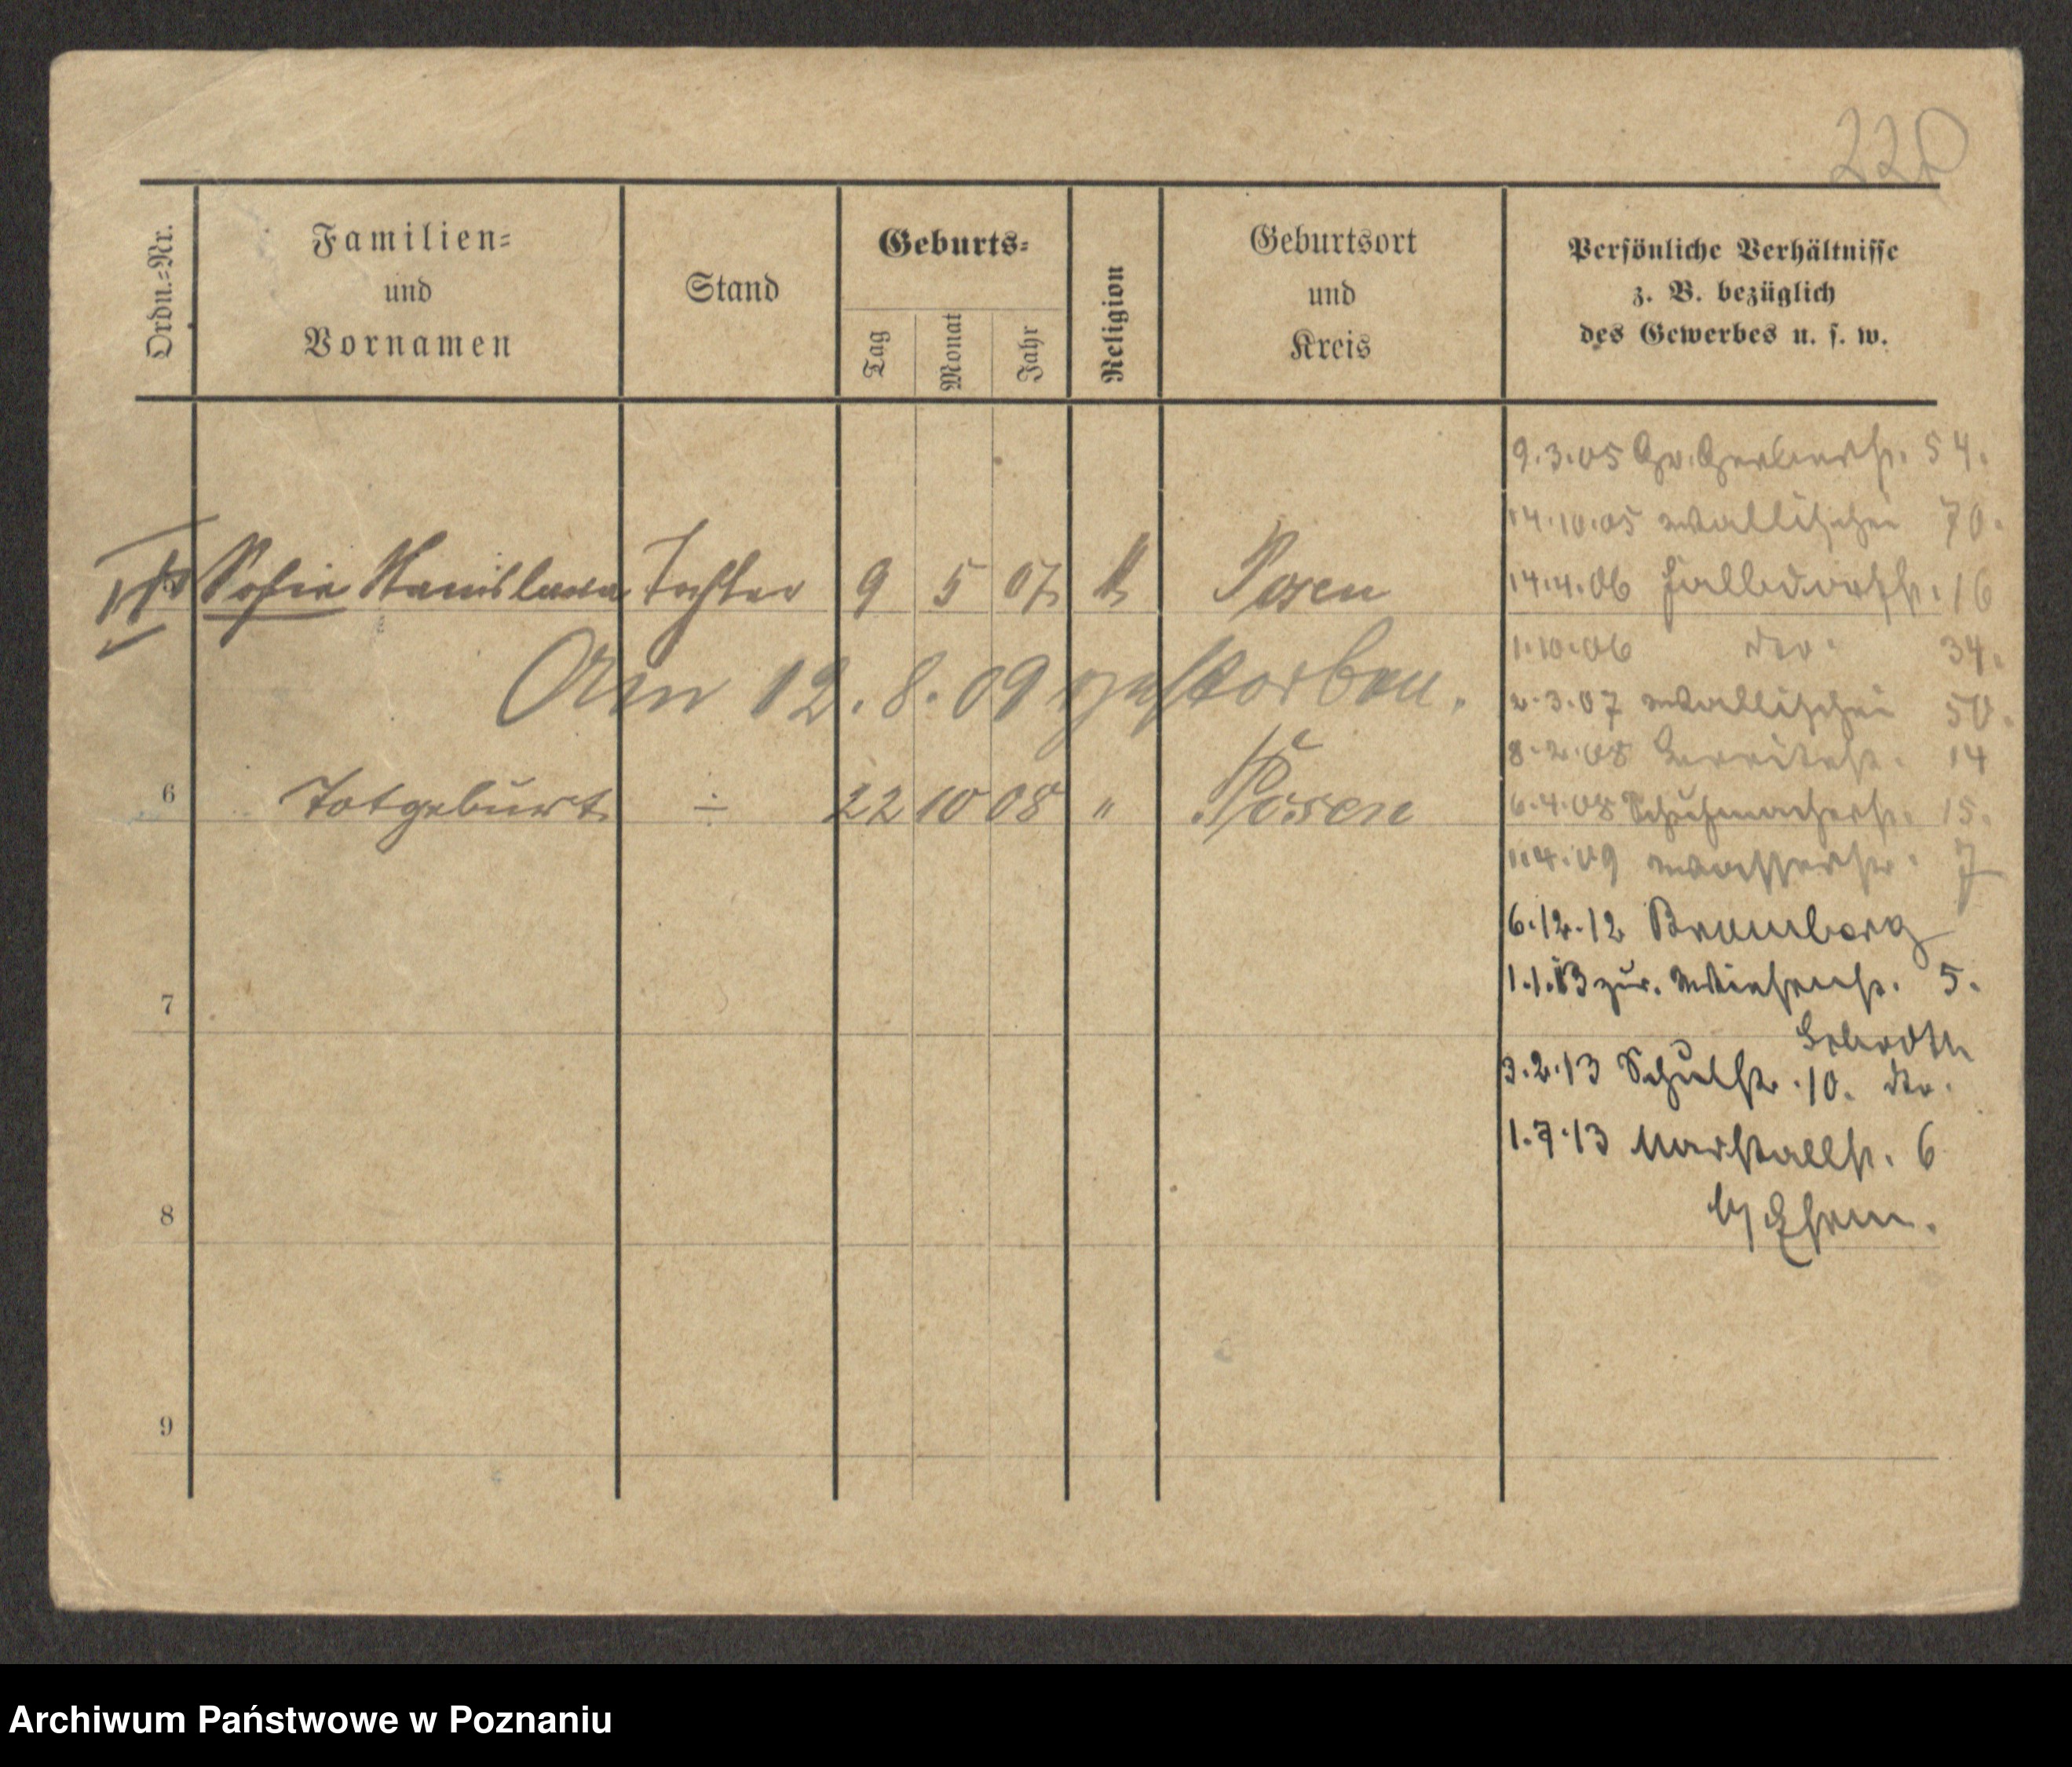 220
Ordn.=Nr.
Familien=
und
Vornamen
Stand
Geburts=
Tag
Monat
Jahr
Religion
Geburtsort
und
Kreis
Persönliche Verhältnisse
z. B. bezüglich
des Gewerbes u. s. w.
9.3.05 Gr. Gerberstr. 54.
14.10.05 Wallischei 70.
Sofie Stanislawa Tochter 9 5 07 k Posen
14.4.06 Halbdorfstr. 16
1.10.06 do. 34.
Am 12.8.09 gestorben.
2.3.07 Wallischei 50.
8.2.08 14
6 Totgeburt ÷ 22 10 08 " Posen
6.4.08 Schuhmacherstr. 15.
1.4.09 Wasserstr. 7
6.12.12 Bromberg
7
1.1.13 zur. Wiesenstr. 5.
3.2.13 Schulstr. 10. do.
1.7.13 Marstallstr. 6
8
b/ Ehem.
9
Archiwum Państwowe w Poznaniu